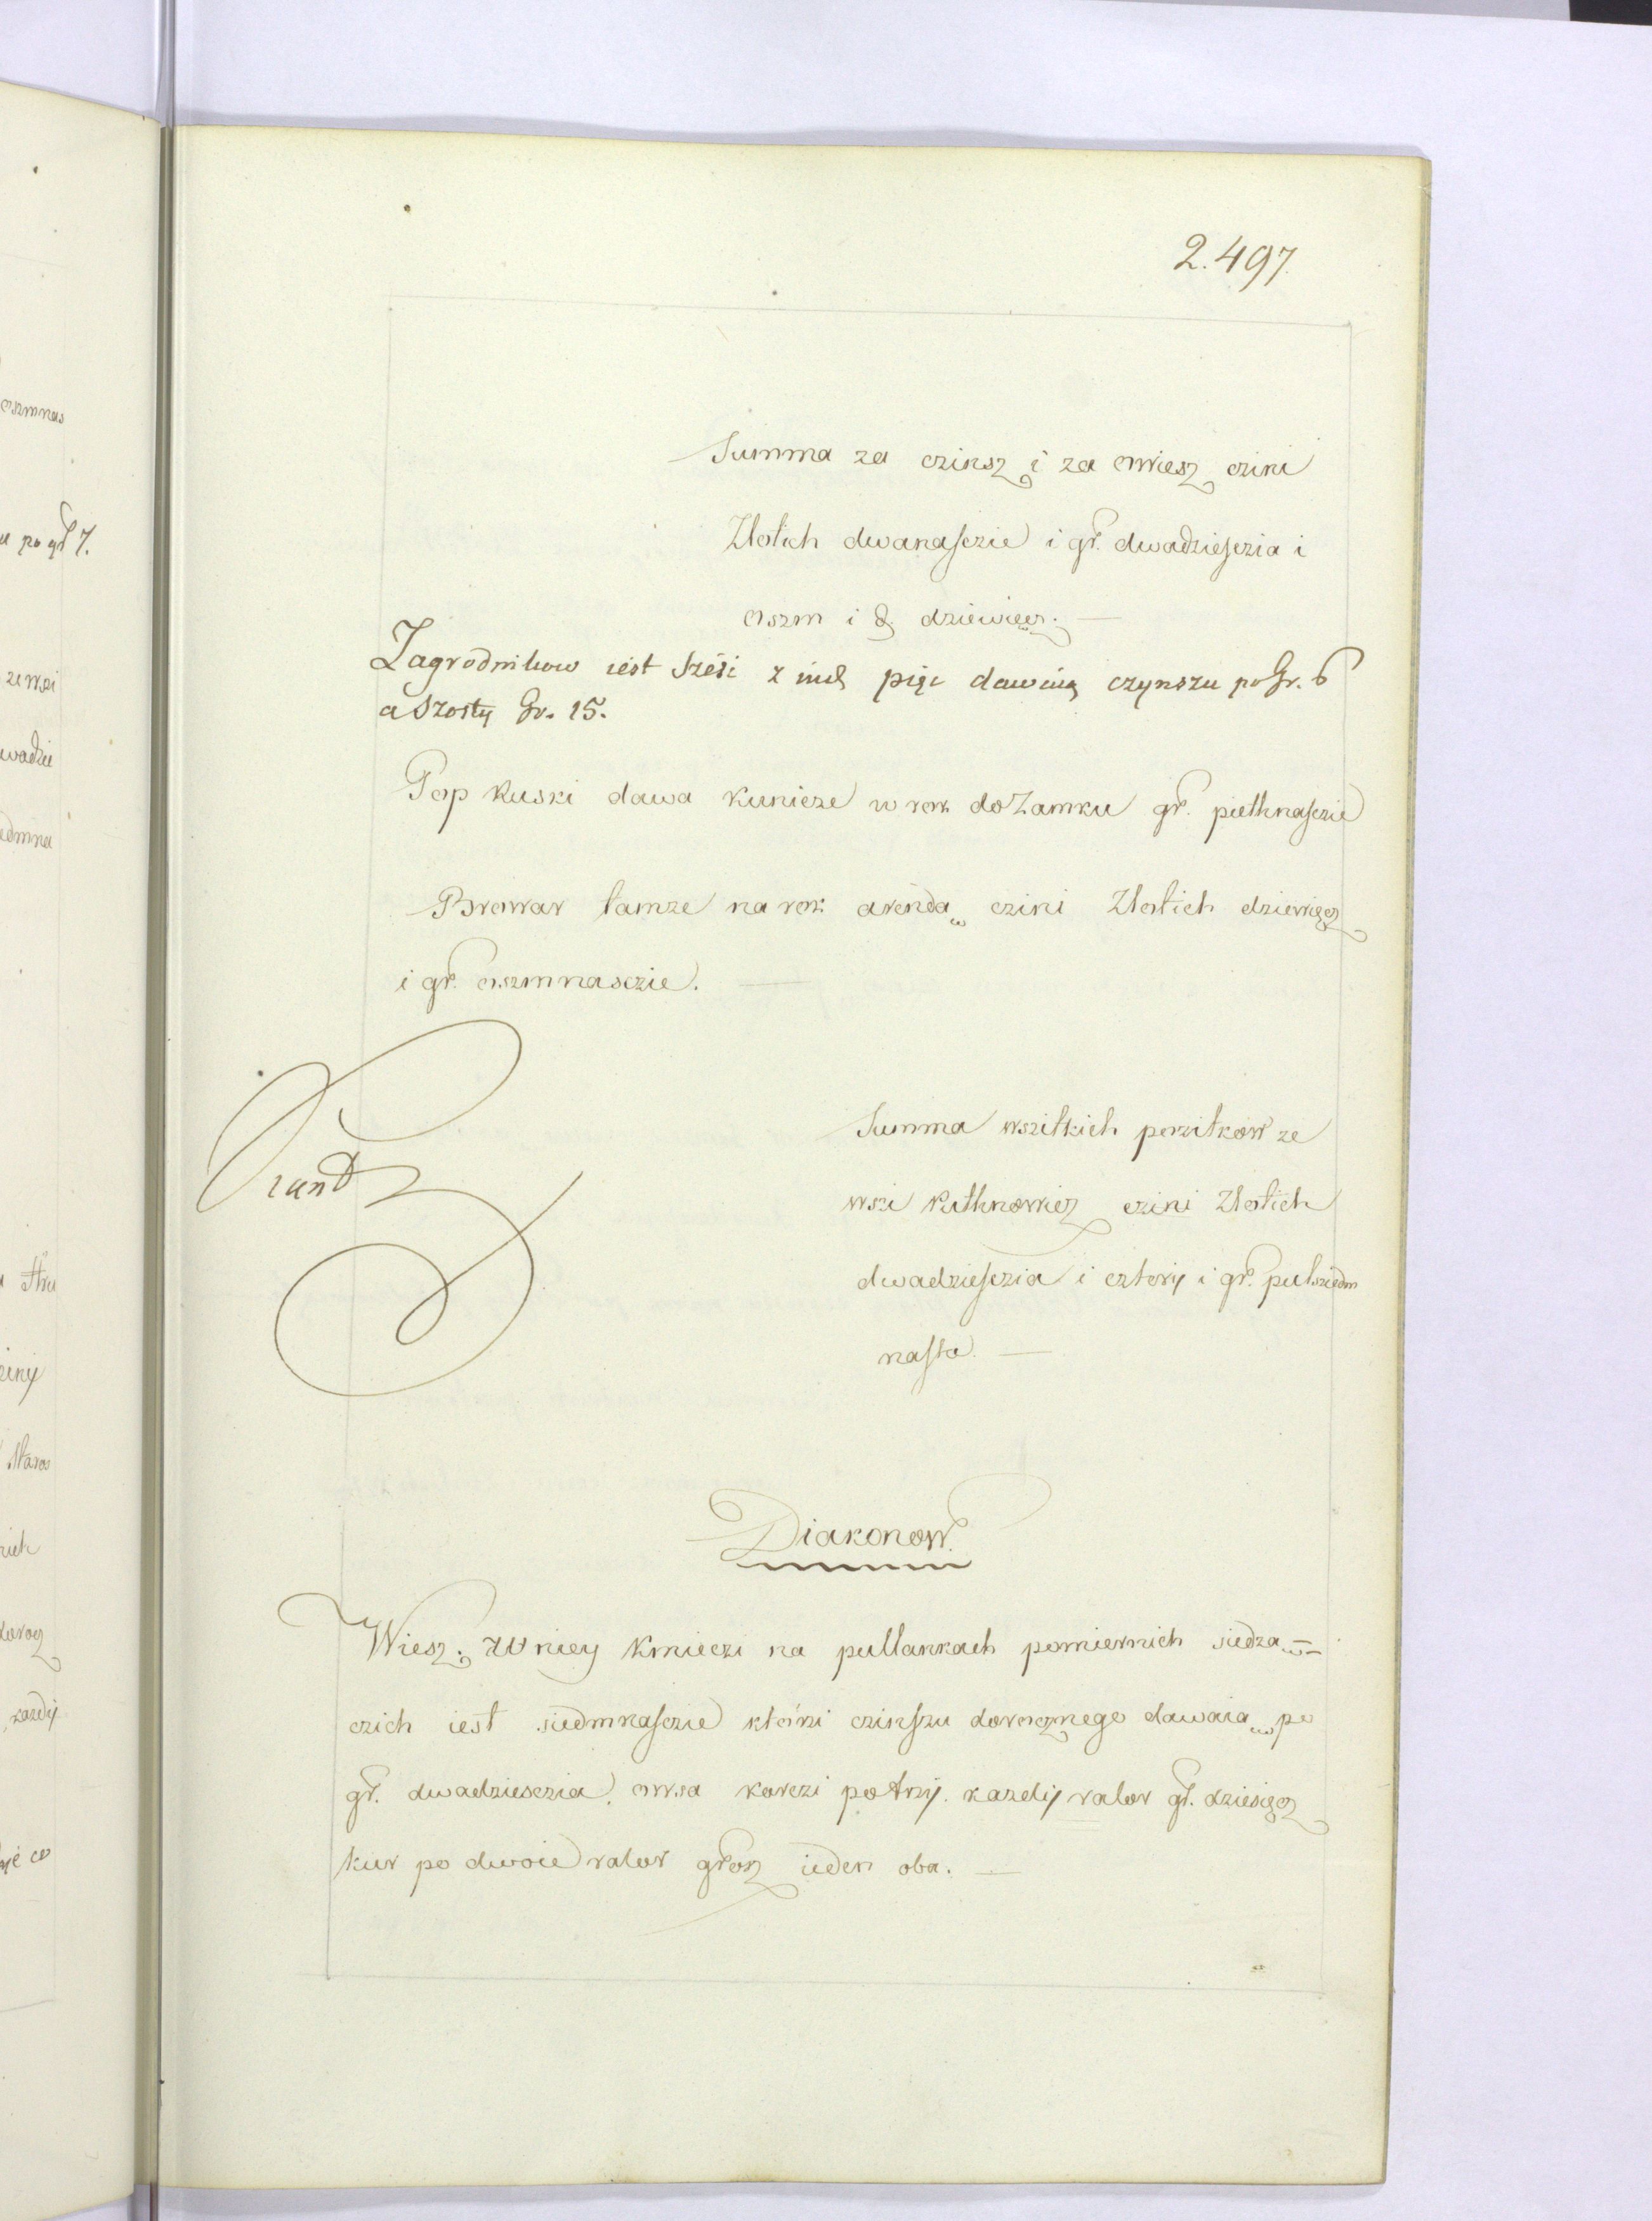 2.497
Summa za czinsz i za owiesz czini
Zlotich dwanasczie i gr. dwadziesczia i
oszm i d. dziewięcz.
Zagrodnikow iest sześć z nich pięc dawaią czynszu po Gr. 6
a Szosty Gr. 15.
Pop Ruski dawa kunicze w rok do Zamku gr. piethnasczie
Browar tamze na rok arenda czini Zlotich dziewięcz
i gr. oszmnasczie.
Summa wszitkich pozitkow ze
wszi Kuthnowicz czini Zlotich
dwadziesczia i cztery i gr. pulsiedm
nasta.
Diakonow.
Wiesz. W niey Kmieczi na pullankach pomiernich siedza=
czich iest siedmnasczie którzi czinszu dorocznego dawaia po
gr. dwadziesczia. owsa korczi po trzy. kazdy valor gr. dziesięcz
kur po dwoie valor grosz ieden oba.
oszmnas
u po gr 7.
ze wszi
wadzie
edmna
Staros
kazdy